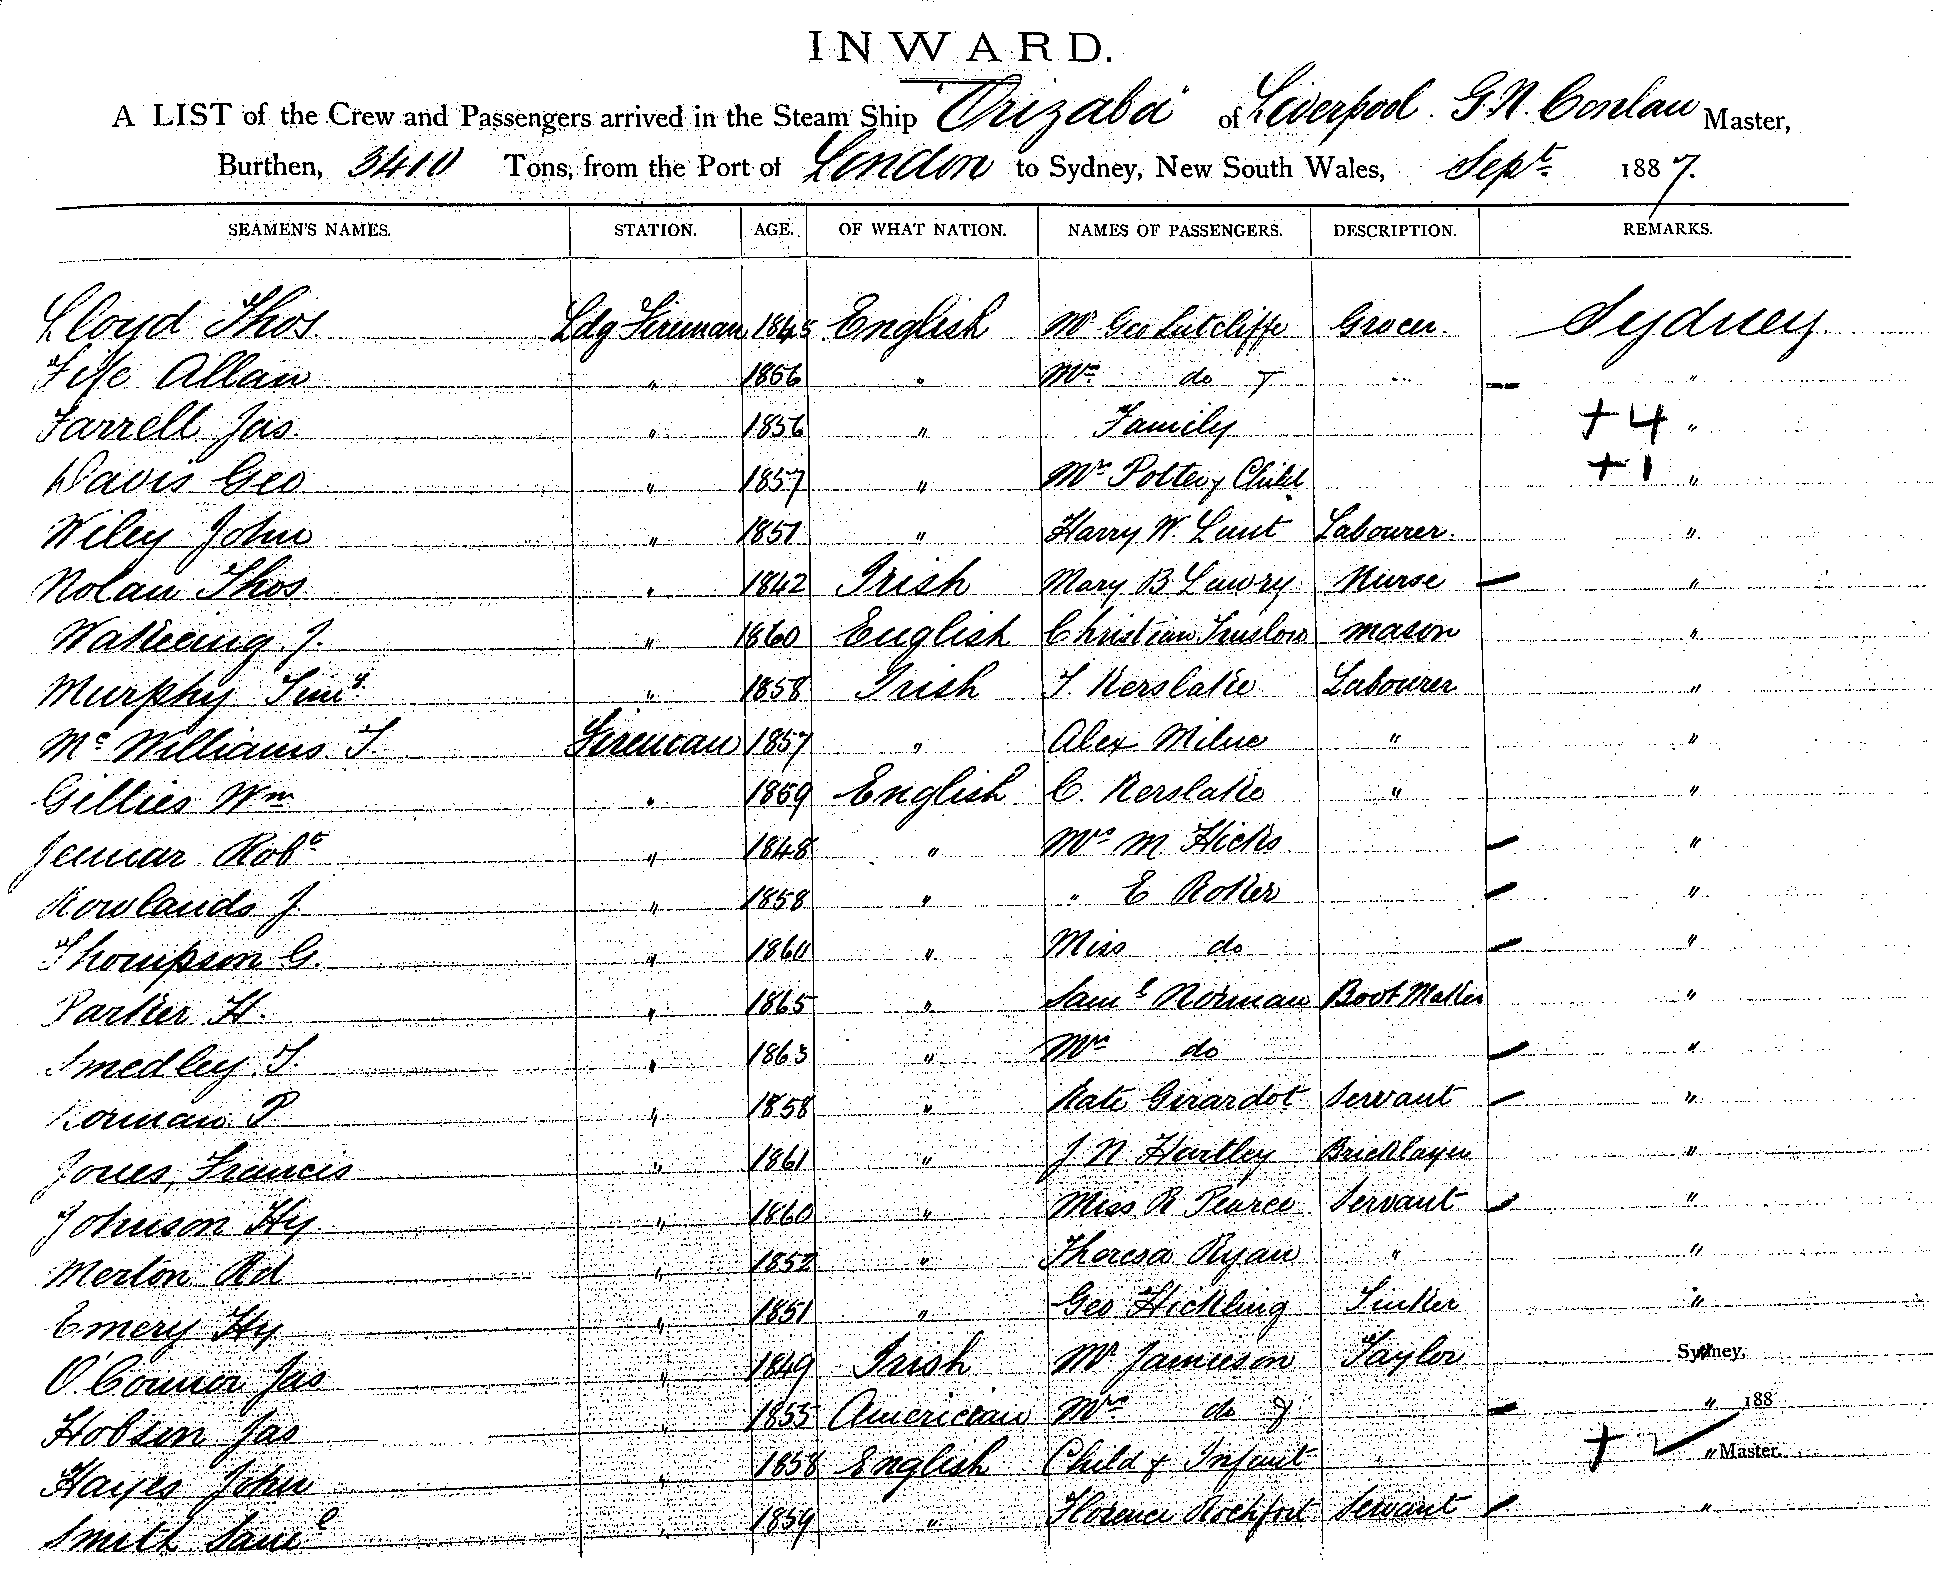 INWARD.
A LIST of the Crew and Passengers arrived in the Steam Ship "Orizaba" of Liverpool. G.N. Conlan Master,
Burthen, 3410 Tons, from the Port of London to Sydney, New South Wales, Sept. 1887.
SEAMEN'S NAMES. STATION. AGE. OF WHAT NATION. NAMES OF PASSENGERS. DESCRIPTION. REMARKS.
Lloyd Thos Ldg Fireman 1845 English Mr Geo Sutcliffe Grocer Sydney
Fife Allan " 1856 " Mrs do & " "
Farrell Jas " 1856 " Family +4 "
Davis Geo " 1857 " Mr Potter & Child +1 "
Wiley John " 1851 " Harry W. Lunt Labourer "
Nolan Thos " 1842 Irish Mary B Lawry Nurse "
Wakeing J. " 1860 English Christian Truslow mason "
Murphy Timy " 1858 Irish T. Kerslake Labourer "
McWilliams T. Fireman 1857 " Alex Milne " "
Gillies Wm " 1859 English C. Kerslake " "
Robt " 1848 " Mrs M Hicks "
Rowlands J " 1858 " " E Roker "
Thompson G. " 1860 " Miss do "
Parker H. " 1865 " Saml Norman Boot Maker "
Smedley T. " 1863 " Mrs do "
Norman P " 1858 " Kate Girardot Servant "
Jones, Francis " 1861 " J N Hartley Bricklayer "
Johnson Hy " 1860 " Miss R Pearce Servant "
Merton Rd " 1852 " Theresa Ryan " "
Emery Hy " 1851 " Geo Hickling Sinker "
O'Connor Jas " 1849 Irish Mr Jamieson Taylor Sydney,
Hobson Jas " 1855 American Mrs do & " 188
Hayes John " 1858 English Child & Infant + " Master.
Smith Saml " 1859 " Florence Rochfort Servant "